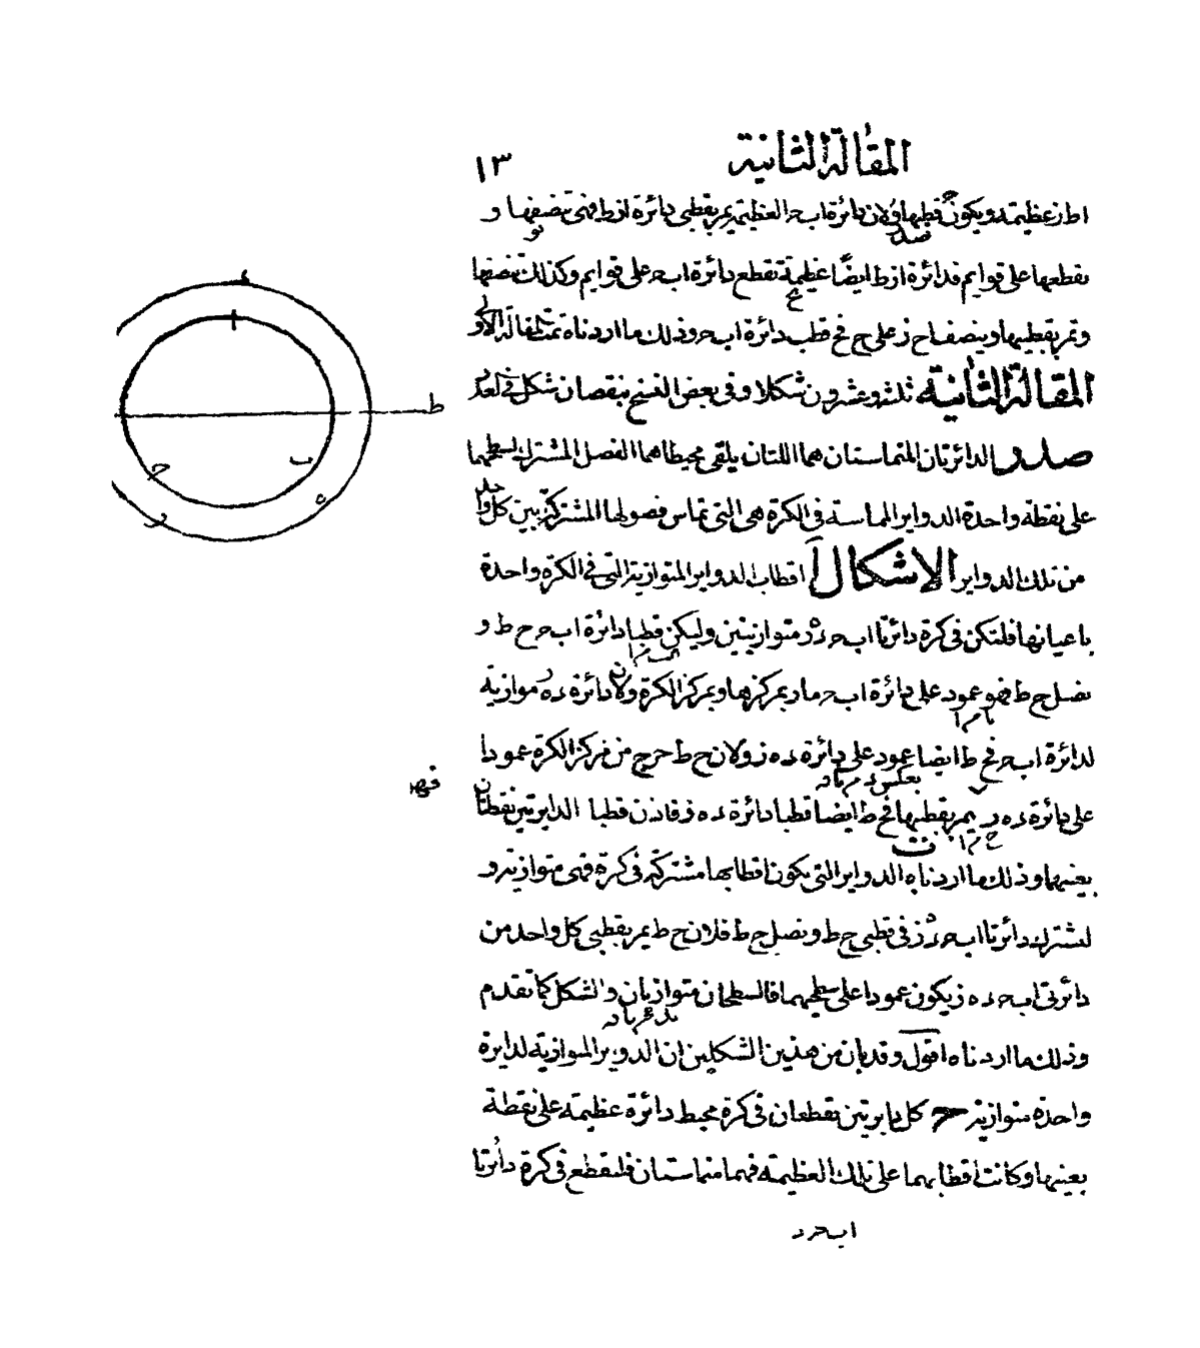 المقالة الثانية
١٣
ا ط ز عظيمة ويكون قطبها ولان دائرة ا ب ح العظيمة يمر بقطبى دائرة ا ز ط فهى تنصفها و
تقطعها على قوايم فدائرة ا ز ط ايضا عظيمة تقطع دائرة ا ب ح على قوايم وكذلك تنصفها
وتمر بقطبيها وينصف ا ح ز على ح فح قطب دائرة ا ب ح وذلك ما اردناه تمت المقالة الاولى
المقالة الثانية ثلثة وعشرون شكلا وفى بعض النسخ بنقصان شكل فى العدد
صدر الدائرتان المتماستان هما اللتان يلقى محيطاهما الفصل المشترك لسطحيهما
على نقطة واحدة الدواير المماسة فى الكرة هى التى تماس فصولها المشتركة بين كل واحد
من تلك الدواير الاشكال ا اقطاب الدواير المتوازية التى فى الكرة واحدة
باعيانها فلتكن فى كرة دائرتا ا ب ح د ه ز متوازيتين وليكن قطبا دائرة ا ب ح ح ط و
نصل ح ط فهو عمود على دائرة ا ب ح مار بمركزها وبمركز الكرة ولان دائرة د ه ز موازية
لدائرة ا ب ح فح ط ايضا عمود على دائرة د ه ز ولان ح ط خرج من مركز الكرة عمودا
على دائرة د ه ز يمر بقطبيها فح ط ايضا قطبا دائرة د ه ز فاذن قطبا الدايرتين نقطتان
بعينهما وذلك ما اردناه ب الدواير التى يكون اقطابها مشتركة فى كرة فهى متوازية و
لتشترك دائرتا ا ب ح د ه ز فى قطبى ح ط ونصل ح ط فلان ح ط يمر بقطبى كل واحد من
دائرتى ا ب ح د ه ز يكون عمودا على سطحيهما فالسطحان متوازيان والشكل كما تقدم
وذلك ما اردناه اقول وقد بان من هذين الشكلين ان الدواير الموازية لدايرة
واحدة متوازية ح كل دايرتين تقطعان فى كرة محيط دائرة عظيمة على نقطة
بعينها وكانت اقطابهما على تلك العظيمة فهما متماستان فلتقطع فى كرة دائرتا
ا ب ح د
ا
ط
ح
ب
ه
ز